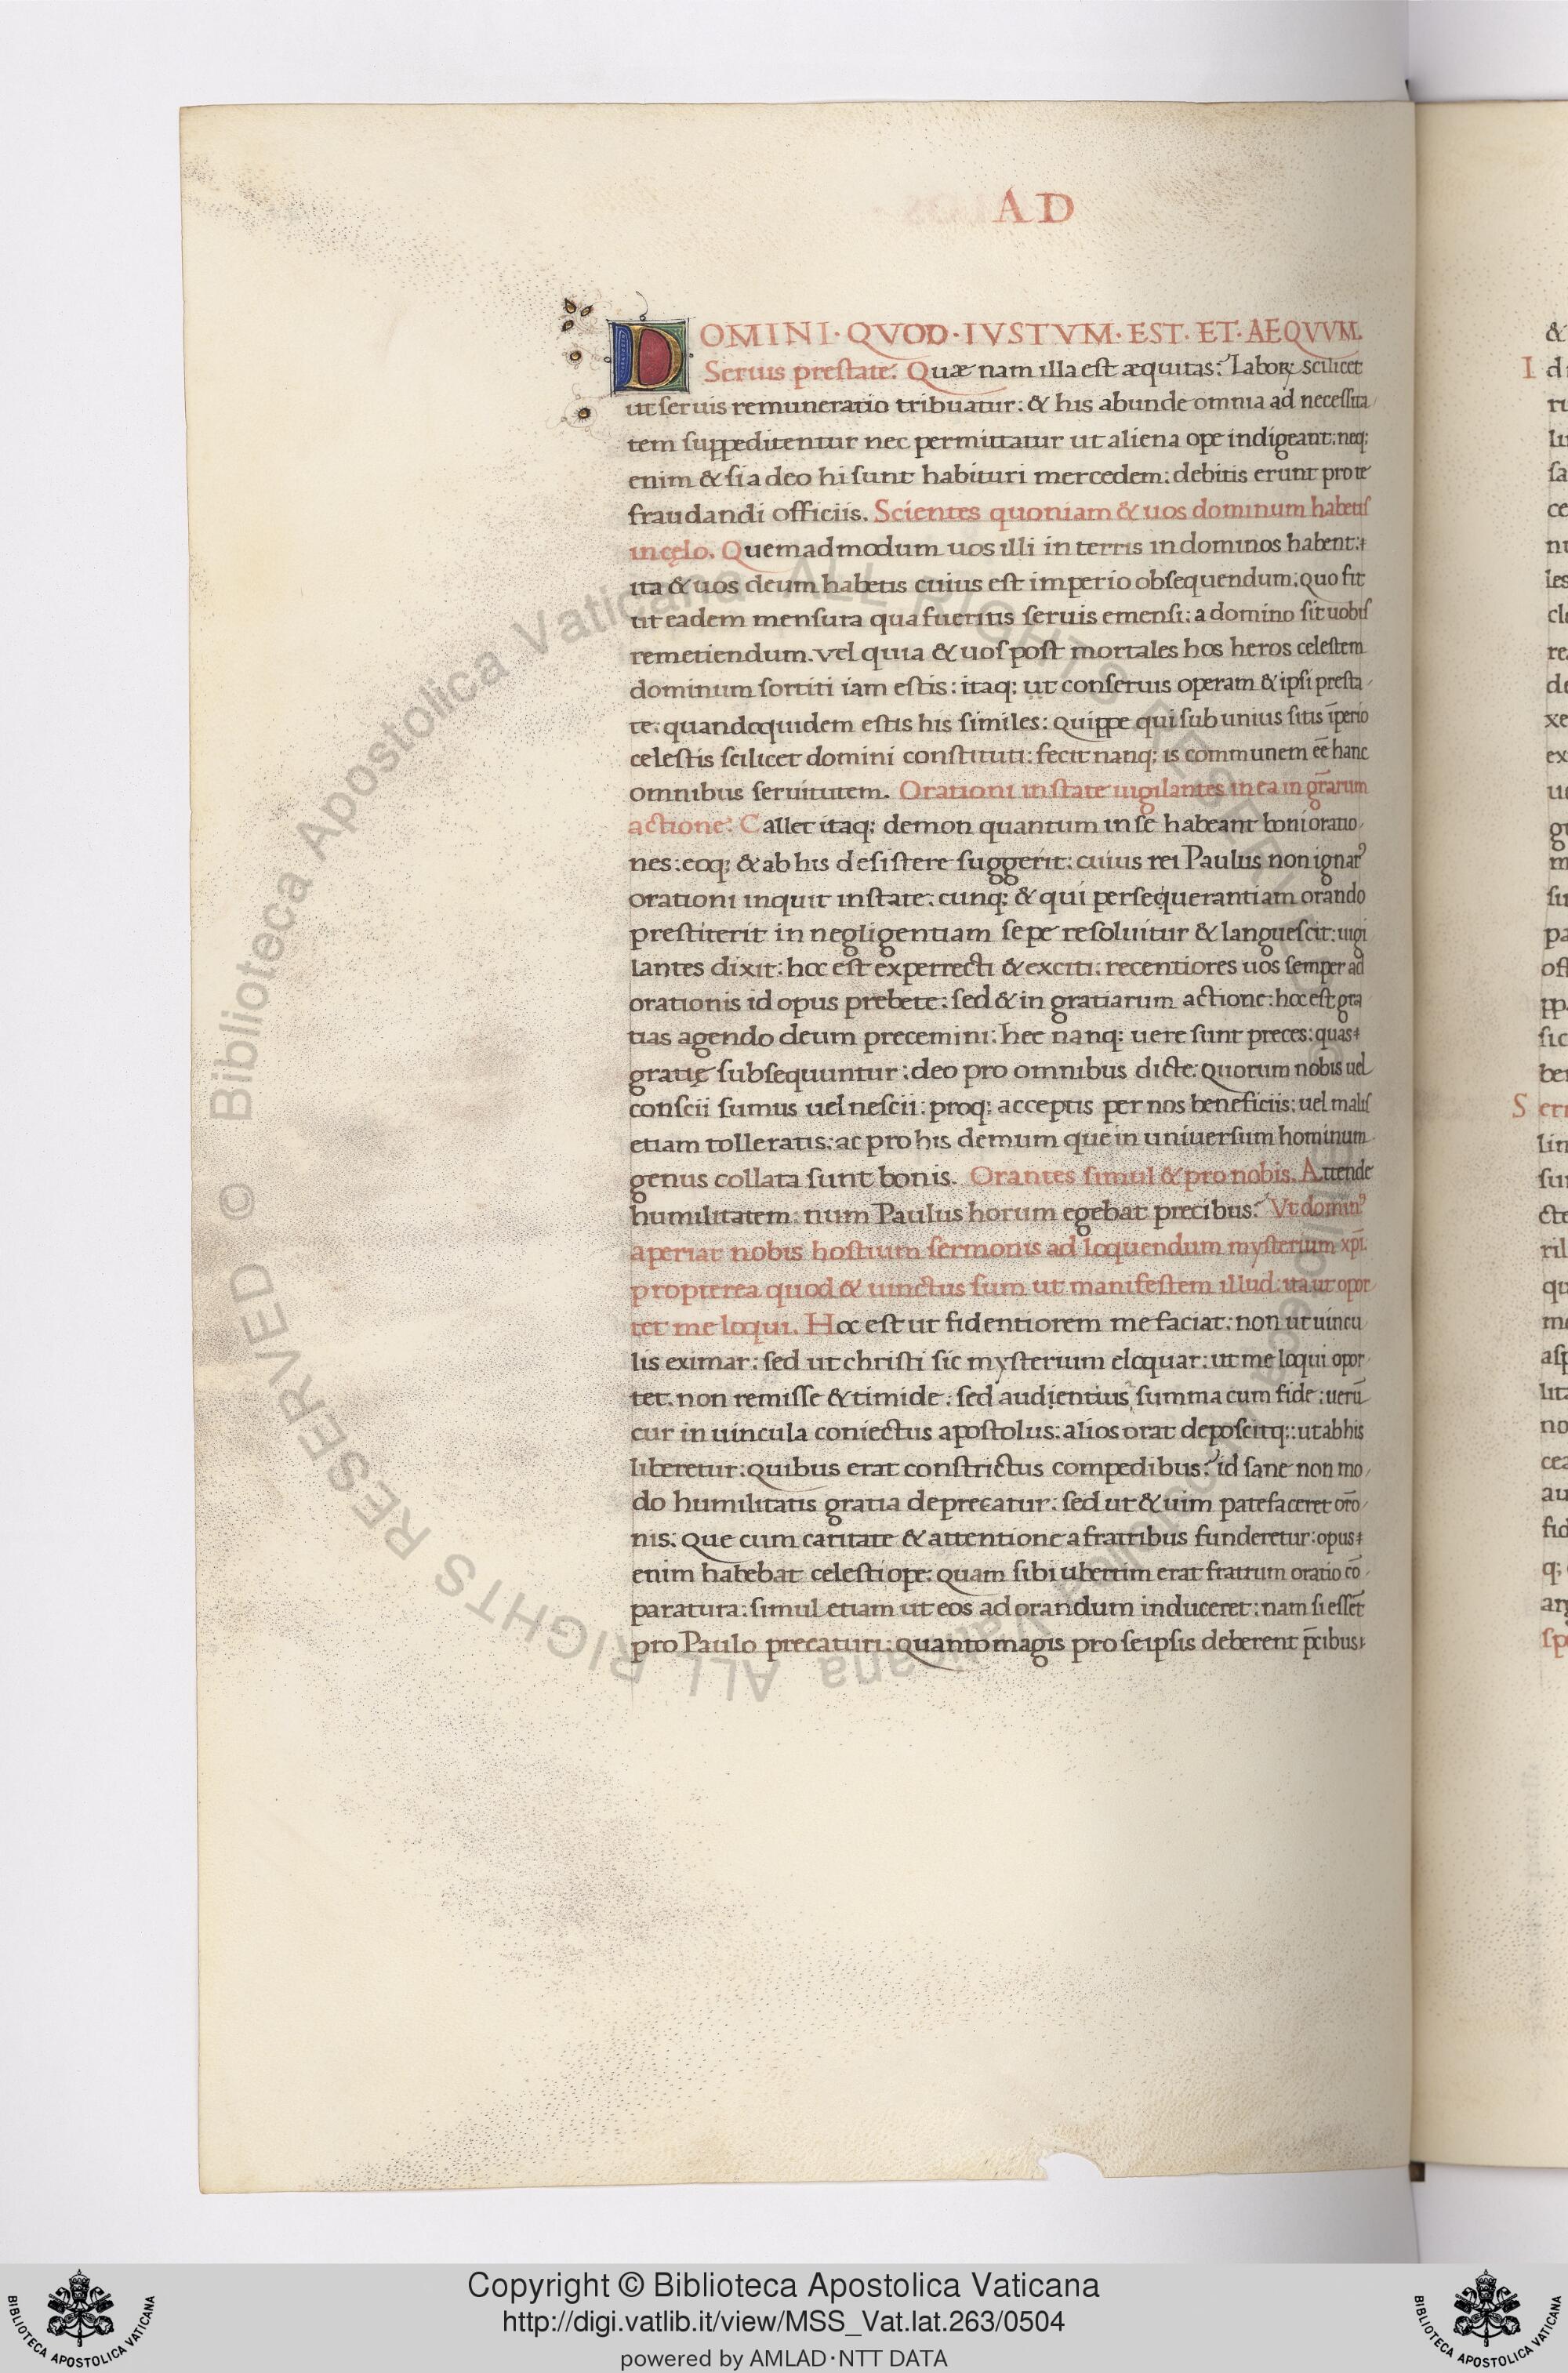 AD
DOMINI·QVOD·IVSTVM·EST·ET·AEQVVM.
Seruis prestate. Quæ nam illa est æquitas? Laboꝝ scilicet
ut seruis remuneratio tribuatur: & his abunde omnia ad necessita
tem suppeditentur nec permittatur ut aliena ope indigeant: neq;
enim & si a deo hi sunt habituri mercedem: debitis erunt pro te
fraudandi officiis. Scientes quoniam & uos dominum habetis
in cęlo. Quemadmodum uos illi in terris in dominos habent:
ita & uos deum habetis cuius est imperio obsequendum: quo fit
ut eadem mensura qua fueritis seruis emensi: a domino sit uobis
remetiendum. vel quia & uos post mortales hos heros celestem
dominum sortiti iam estis: itaq; ut conseruis operam & ipsi presta
te: quandoquidem estis his similes: quippe qui sub unius sitis īperio
celestis scilicet domini constituti: fecit nanq; is communem eē hanc
omnibus seruitutem. Orationi instate uigilantes in ea in gr̄arum
actione. Callet itaq; demon quantum in se habeant boni oratio
nes: eoq; & ab his desistere suggerit: cuius rei Paulus non ignarꝰ
orationi inquit instate: cunq; & qui persequerantiam orando
prestiterit in negligentiam sepe resoluitur & languescit: uigi
lantes dixit: hoc est experrecti & exciti: recentiores uos semper ad
orationis id opus prebete: sed & in gratiarum actione: hoc est gra
tias agendo deum precemini: hec nanq; uere sunt preces: quas
gratię subsequuntur: deo pro omnibus dicte: quorum nobis uel
conscii sumus uel nescii: proq; acceptis per nos beneficiis: uel malis
etiam tolleratis: ac pro his demum que in uniuersum hominum
genus collata sunt bonis. Orantes simul & pro nobis. Attende
humilitatem: num Paulus horum egebat precibus? Vt dominꝰ
aperiat nobis hostium sermonis ad loquendum mysterium xp̄i.
propterea quod & uinctus sum ut manifestem illud: ita ut opor
tet me loqui. Hoc est ut fidentiorem me faciat: non ut uincu
lis eximar: sed ut christi sic mysterium eloquar: ut me loqui opor
tet: non remisse & timide: sed audientius summa cum fide: uerū
cur in uincula coniectus apostolus: alios orat deposcitq;: ut ab his
liberetur: quibus erat constrictus compedibus? id sane non mo
do humilitatis gratia deprecatur: sed ut & uim patefaceret orō
nis: que cum caritate & attentione a fratribus funderetur: opus
enim habebat celesti ope: quam sibi ubertim erat fratrum oratio cō
paratura: simul etiam ut eos ad orandum induceret: nam si essēt
pro Paulo precaturi: quanto magis pro se ipsis deberent p̄cibus
© Biblioteca Apostolica Vaticana ALL RIGHTS RESERVED
Copyright © Biblioteca Apostolica Vaticana
http://digi.vatlib.it/view/MSS_Vat.lat.263/0504
powered by AMLAD·NTT DATA
BIBLIOTECA APOSTOLICA VATICANA
BIBLIOTECA APOSTOLICA VATICANA